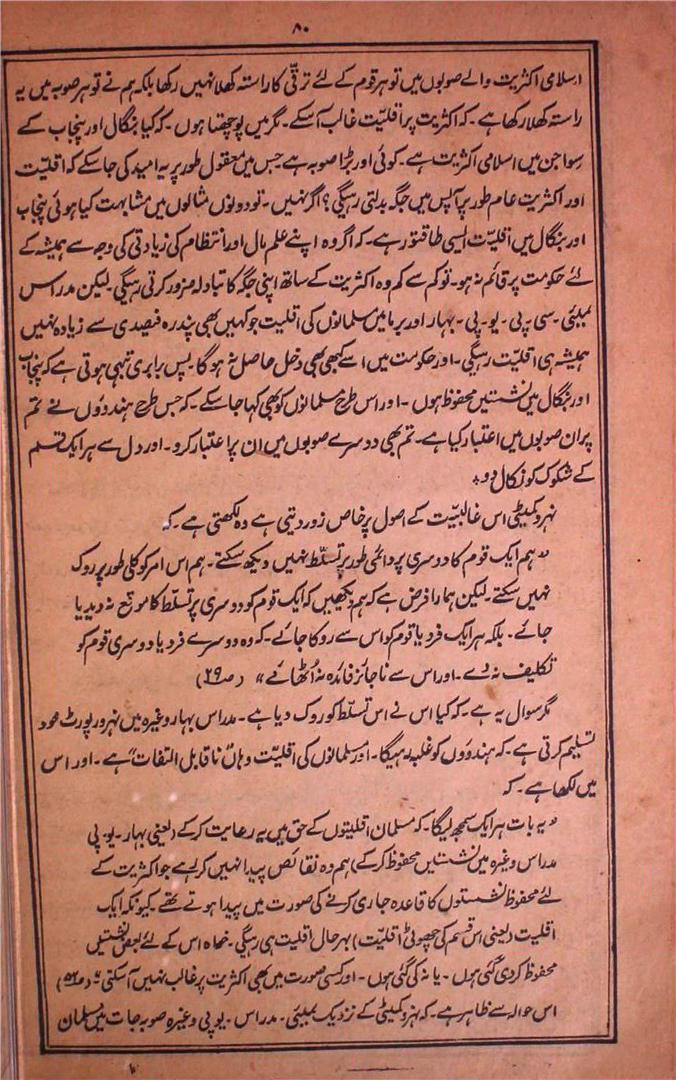 ۸۰
اسلامی اکثریت والے صوبوں میں تو ہر قوم کے لئے ترقی کا راستہ کھلا نہیں رکھا بلکہ ہم نے تو ہر صوبہ میں یہ
راستہ کھلا رکھا ہے۔ کہ اکثریت پر اقلیّت غالب آسکے۔ مگر میں پوچھتا ہوں۔ کہ کیا بنگال اور پنجاب کے
سوا جن میں اسلامی اکثریت ہے۔ کوئی اور بڑا صوبہ ہے جس میں معقول طور پر یہ امید کی جاسکے کہ اقلیّت
اور اکثریت عام طور پر آپس میں جگہ بدلتی رہیگی؟ اگر نہیں۔ تو دونوں مثالوں میں مشابہت کیا ہوئی پنجاب
اور بنگال میں اقلیّت ایسی طاقتور ہے۔ کہ اگر وہ اپنے علم مال اور انتظام کی زیادتی کی وجہ سے ہمیشہ کے
لئے حکومت پر قائم نہ ہو۔ تو کم سے کم وہ اکثریت کے ساتھ اپنی جگہ کا تبادلہ ضرور کرتی رہیگی۔ لیکن مدراس
بمبئی۔ سی۔ پی۔ یو۔ پی۔ بہار اور برما میں مسلمانوں کی اقلیت جو کہیں بھی پندرہ فیصدی سے زیادہ نہیں
ہمیشہ ہی اقلیّت رہیگی۔ اور حکومت میں اسے کبھی بھی دخل حاصل نہ ہوگا۔ پس برابری تبہی ہوتی ہے کہ پنجاب
اور بنگال میں نشستیں محفوظ ہوں۔ اور اس طرح مسلمانوں کو بھی کہا جاسکے۔ کہ جس طرح ہندوؤں نے تم
پر ان صوبوں میں اعتبار کیا ہے۔ تم بھی دوسرے صوبوں میں ان پر اعتبار کرو۔ اور دل سے ہر ایک قسم
کے شکوک کو نکال دو۔
نہرو کمیٹی اس غالبیّت کے اصول پر خاص زور دیتی ہے وہ لکھتی ہے۔ کہ
"ہم ایک قوم کا دوسری پر دائمی طور پر تسلّط نہیں دیکھ سکتے۔ ہم اس امر کو کلی طور پر روک
نہیں سکتے۔ لیکن ہمارا فرض ہے کہ ہم دیکھیں کہ ایک قوم کو دوسری پر تسلّط کا موقع نہ دیدیا
جائے۔ بلکہ ہر ایک فرد یا قوم کو اس سے روکا جائے۔ کہ وہ دوسرے فرد یا دوسری قوم کو
تکلیف نہ دے۔ اور اس سے ناجائز فائدہ نہ اُٹھائے" (صـ ۲۹)
مگر سوال یہ ہے۔ کہ کیا اس نے اس تسلّط کو روک دیا ہے۔ مدراس بہار وغیرہ میں نہرو رپورٹ خود
تسلیم کرتی ہے۔ کہ ہندوؤں کو غلبہ رہیگا۔ اور مسلمانوں کی اقلیّت وہاں "ناقابل التفات" ہے۔ اور اس
میں لکھا ہے۔ کہ
"یہ بات ہر ایک سمجھ لیگا۔ کہ مسلمان اقلیتوں کے حق میں یہ رعایت کر کے (یعنی بہار۔ یو۔ پی
مدراس وغیرہ میں نشستیں محفوظ کر کے) ہم وہ نقائص پیدا نہیں کر رہے جو اکثریت کے
لئے محفوظ نشستوں کا قاعدہ جاری کرنے کی صورت میں پیدا ہوتے تھے۔ کیونکہ ایک
اقلیت (یعنی اس قسم کی چھوٹی اقلیت) بہرحال اقلیت ہی رہیگی۔ خواہ اس کے لئے بعض نشستیں
محفوظ کر دی گئی ہوں۔ یا نہ کی گئی ہوں۔ اور کسی صورت میں بھی اکثریت پر غالب نہیں آسکتی" (صـ ۵۲)
اس حوالہ سے ظاہر ہے۔ کہ نہرو کمیٹی کے نزدیک بمبئی۔ مدراس۔ یو پی وغیرہ صوبہ جات میں مسلمان